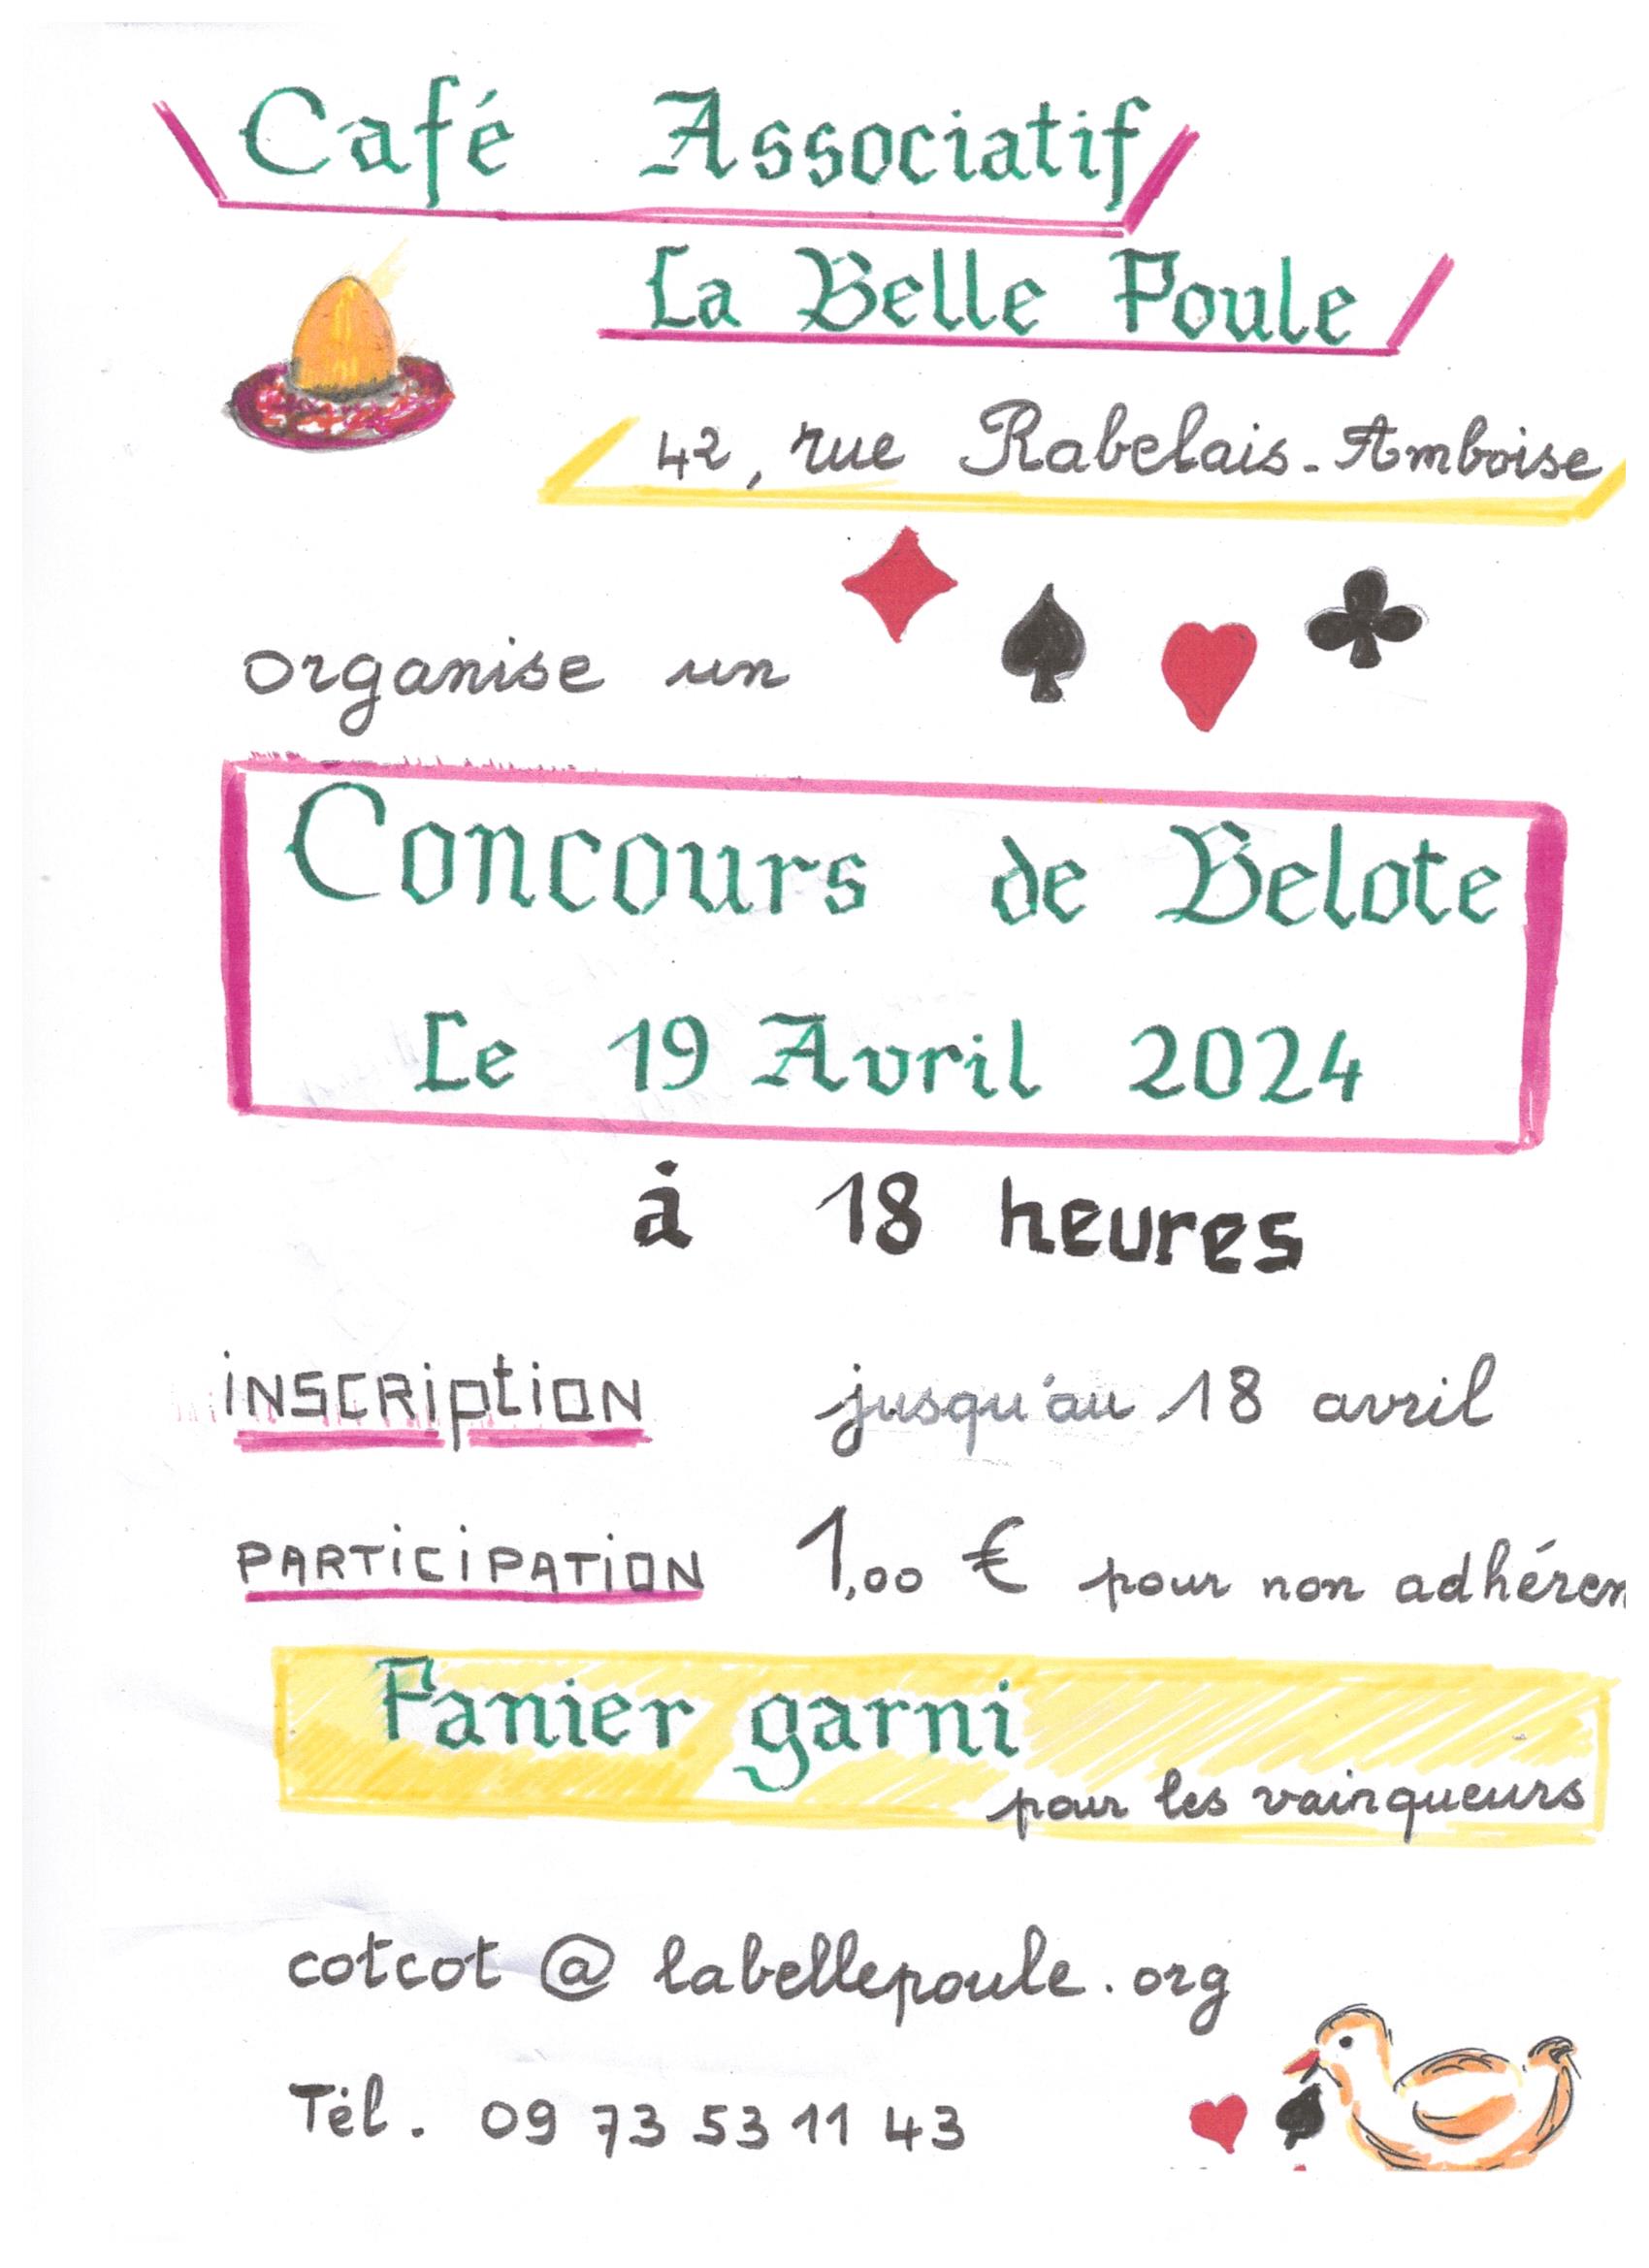 Café Associatif
La Belle Poule
42, rue Rabelais - Amboise
organise un
Concours de Belote
Le 19 Avril 2024
à 18 heures
inscription jusqu'au 18 avril
PARTICIPATION 1,00 € pour non adhéren
Panier garni
pour les vainqueurs
cotcot @ labellepoule.org
Tél. 09 73 53 11 43